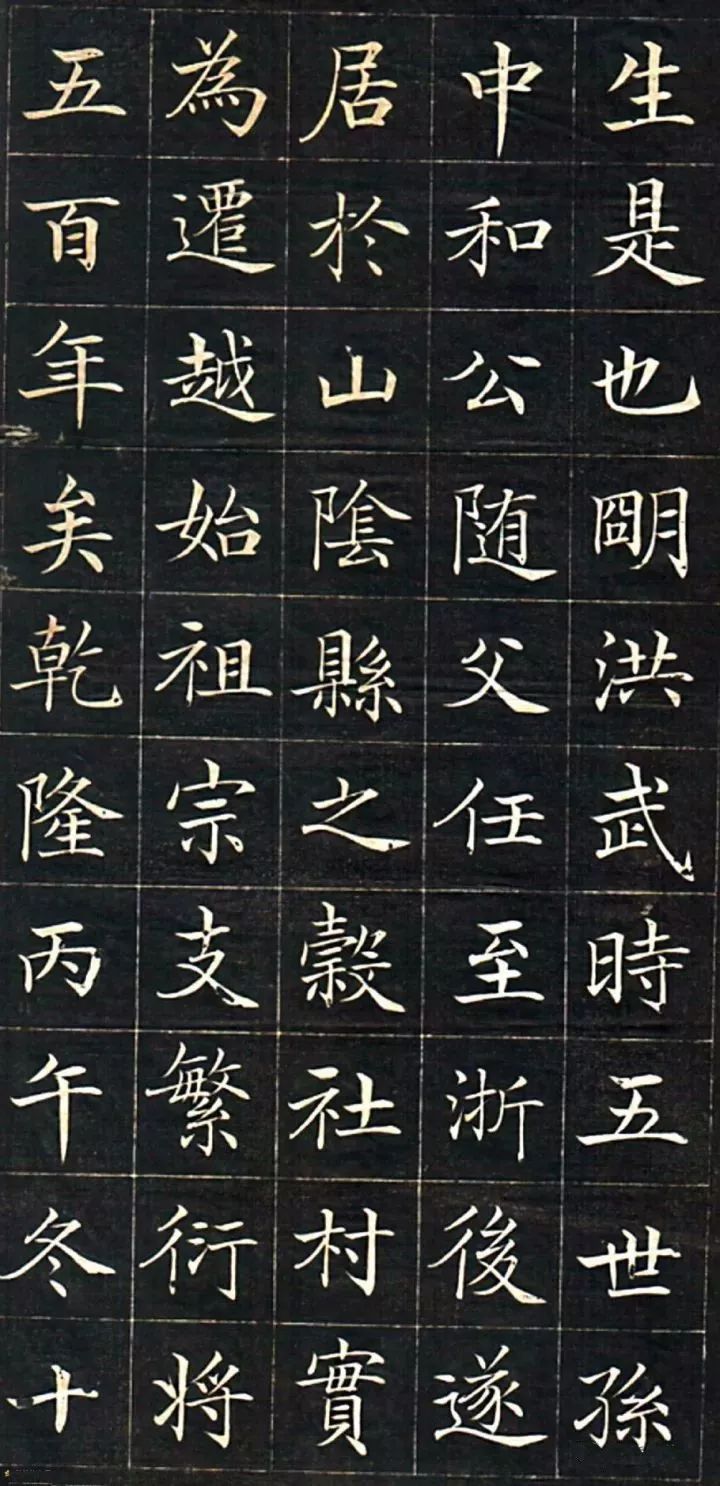 生是也朙洪武時五世孫
中和公随父任至浙後遂
居於山陰縣之穀社村實
為遷越始祖宗支繁衍将
五百年矣乾隆丙午冬十